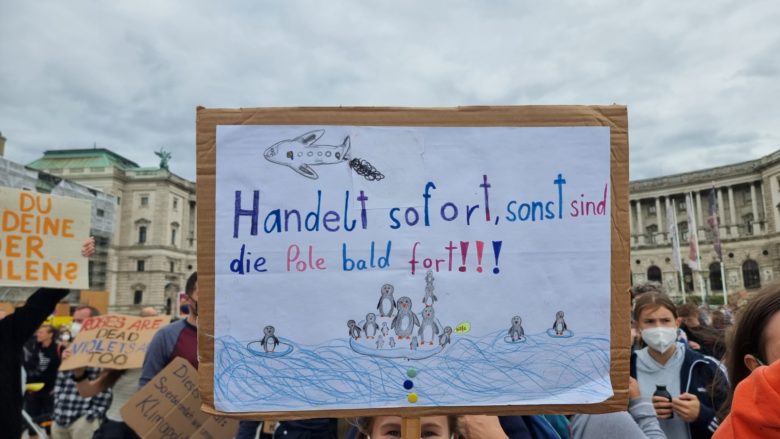 Handelt sofort, sonst sind
die Pole bald fort!!!
DU
DEINE
DER
ROSES ARE
DEAD
VIOLETS ARE
TOO